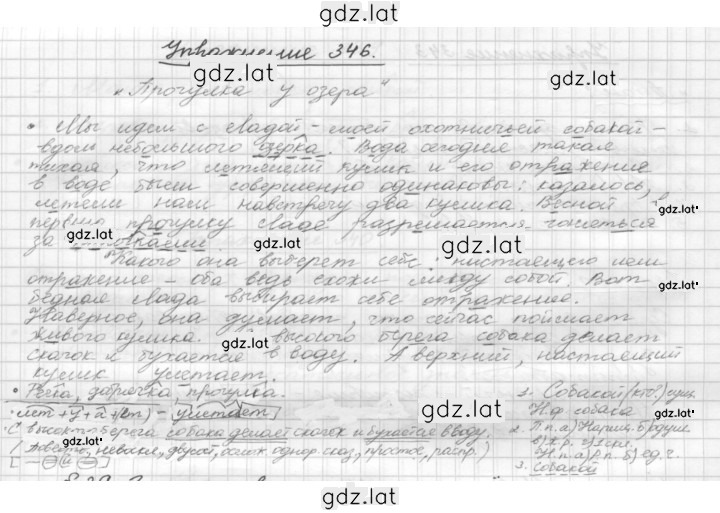 gdz.lat
Упражнение 346.
gdz.lat
gdz.lat
„Прогулка у озера"
• Мы идем с Ладой – моей охотничьей собакой –
вдоль небольшого озерка. Вода сегодня такая
тихая, что летящий кулик и его отражение
в воде были совершенно одинаковы: казалось,
летели нам навстречу два кулика. Весной
gdz.lat
в первую прогулку Ладе разрешается гоняться
gdz.lat
gdz.lat
gdz.lat
за
Какого она выберет себе, настоящего или
отражение – оба ведь схожи между собой. Вот
gdz.lat
бедная Лада выбирает себе отражение.
Наверное, она думает, что сейчас поймает
живого кулика. С высокого берега собака делает
gdz.lat
скачок и бухается в воду. А верхний, настоящий
кулик улетает.
• прогулка.
gdz.lat
улетает
С высокого берега собака делает скачок и бухается в воду.
gdz.lat
1. Собакой (кто?) сущ.
Н.ф. собака
2.
3. Собакой
gdz.lat